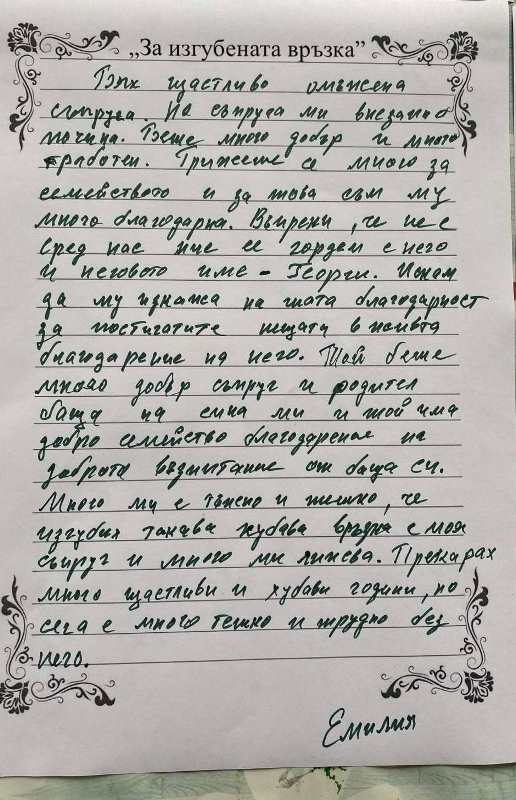 „За изгубената връзка”
Бях щастливо омъжена
съпруга. Но съпруга ми внезапно
почина. Беше много добър и много
работен. Грижеше се много за
семейството и за това съм му
много благодарна. Въпреки, че не е
сред нас ние се гордем с него
и неговото име - Георги. Искам
да му изкажа на шата благодарност
за постигатите нещата в живта
благодарение на него. Той беше
много добър съпруг и родител
баща на сина ми и той има
добро семейство благодарение на
доброто възпитание от баща си.
Много ми е тъжно и тешко, че
изгубих такава хубава връзка с моя
съпруг и много ми липсва. Прекарах
много щастливи и хубави години, но
сега е много тешко и трудно без
него.
Емилия